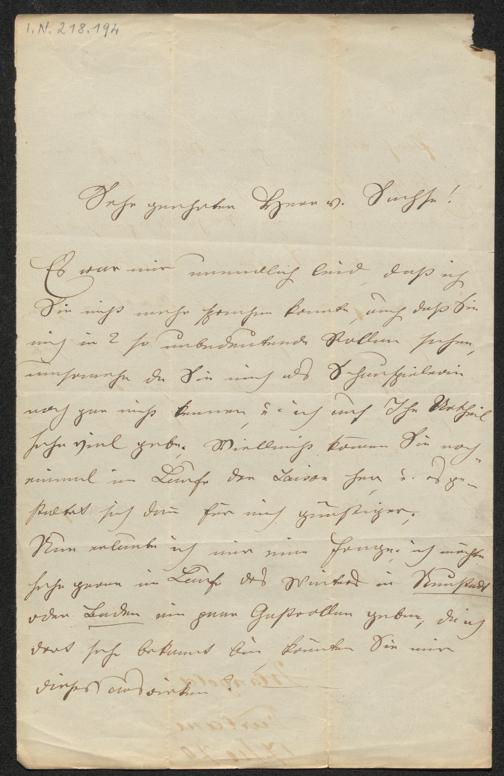 I.N. 218.194
Sehr geehrter Herr v. Sachse!
Es war mir unendlich leid, daß ich
Sie nicht mehr sprechen konnte, auch daß Sie
mich in 2 so unbedeutende Rollen sahen,
umsomehr da Sie mich als Schauspielerin
noch gar nicht kennen, u. ich auf Ihr Urtheil
sehr viel gebe. Vielleicht kömen Sie noch
einmal im Laufe der Saison her, u. es ge-
staltet sich dañ für mich günstiger.
Nun erlaube ich mir eine Frage: ich möchte
sehr gerne im Laufe des Winters in Neustadt
oder Baden ein paar Gastrollen geben, da ich
dort sehr bekannt bin könnten Sie mir
dieses auswirken?